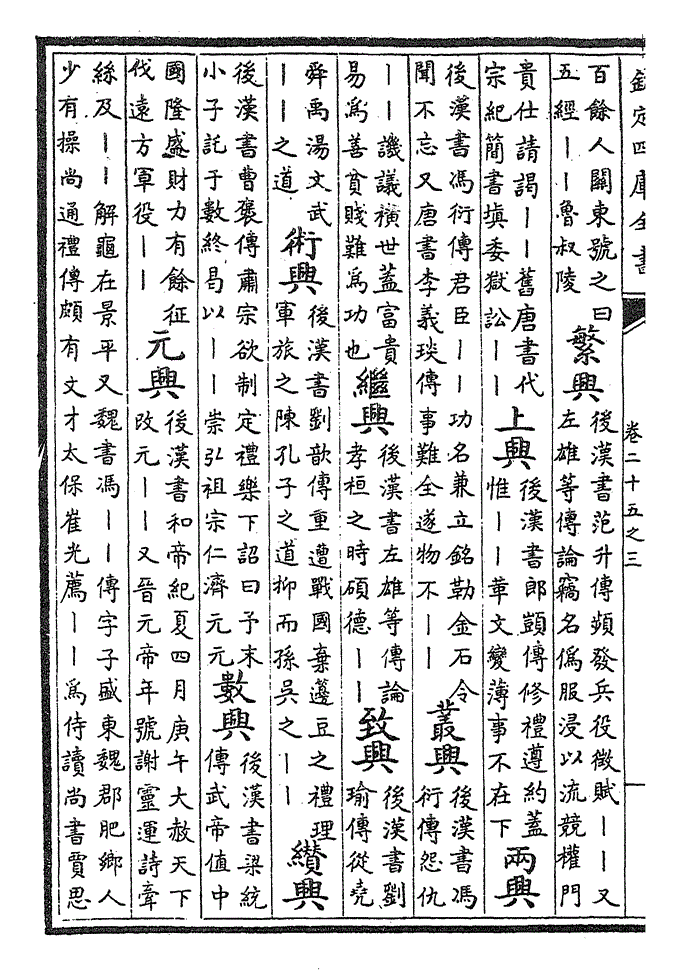 欽定四庫全書
卷二十五之三
百餘人關東號之曰
五經丨丨魯叔陵
繁興
後漢書范升傳頻發兵役徵賦丨丨又
左雄等傳論竊名偽服浸以流競權門
貴仕請謁丨丨舊唐書代
宗紀簡書塡委獄訟丨丨
上興
後漢書郎顗傳修禮遵約蓋
惟丨丨革文變薄事不在下
兩興
後漢書馮衍傳君臣丨丨功名兼立銘勒金石令
聞不忘又唐書李義琰傳事難全遂物不丨丨
叢興
後漢書馮
衍傳怨仇
丨丨譏議橫世蓋富貴
易爲善貧賤難爲功也
繼興
後漢書左雄等傳論
孝桓之時碩德丨丨
致興
後漢書劉
瑜傳從堯
舜禹湯文武
丨丨之道
術興
後漢書劉歆傳重遭戰國棄籩豆之禮理
軍旅之陳孔子之道抑而孫吳之丨丨
纘興
後漢書曹襃傳肅宗欲制定禮樂下詔曰予末
小子託于數終曷以丨丨崇弘祖宗仁濟元元
數興
後漢書梁統
傳武帝值中
國隆盛財力有餘征
伐遠方軍役丨丨
元興
後漢書和帝紀夏四月庚午大赦天下
改元丨丨又晉元帝年號謝靈運詩牽
絲及丨丨解龜在景平又魏書馮丨丨傳字子盛東魏郡肥鄉人
少有操尚通禮傳頗有文才太保崔光薦丨丨爲侍讀尚書賈思